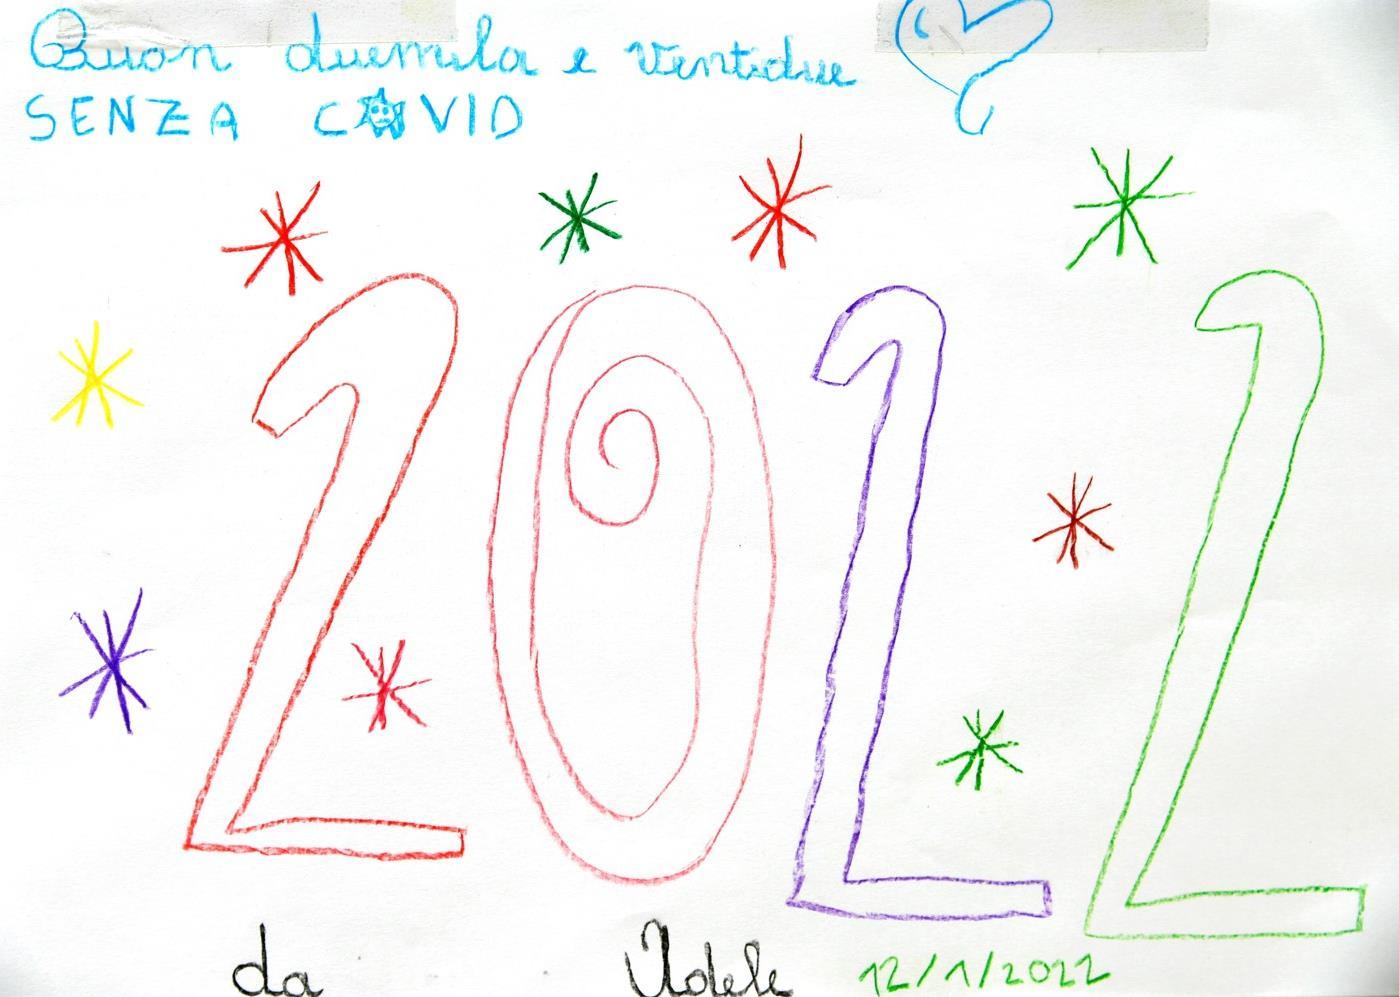 Buon duemila e ventidue
SENZA COVID
2022
da Adele 12/1/2022